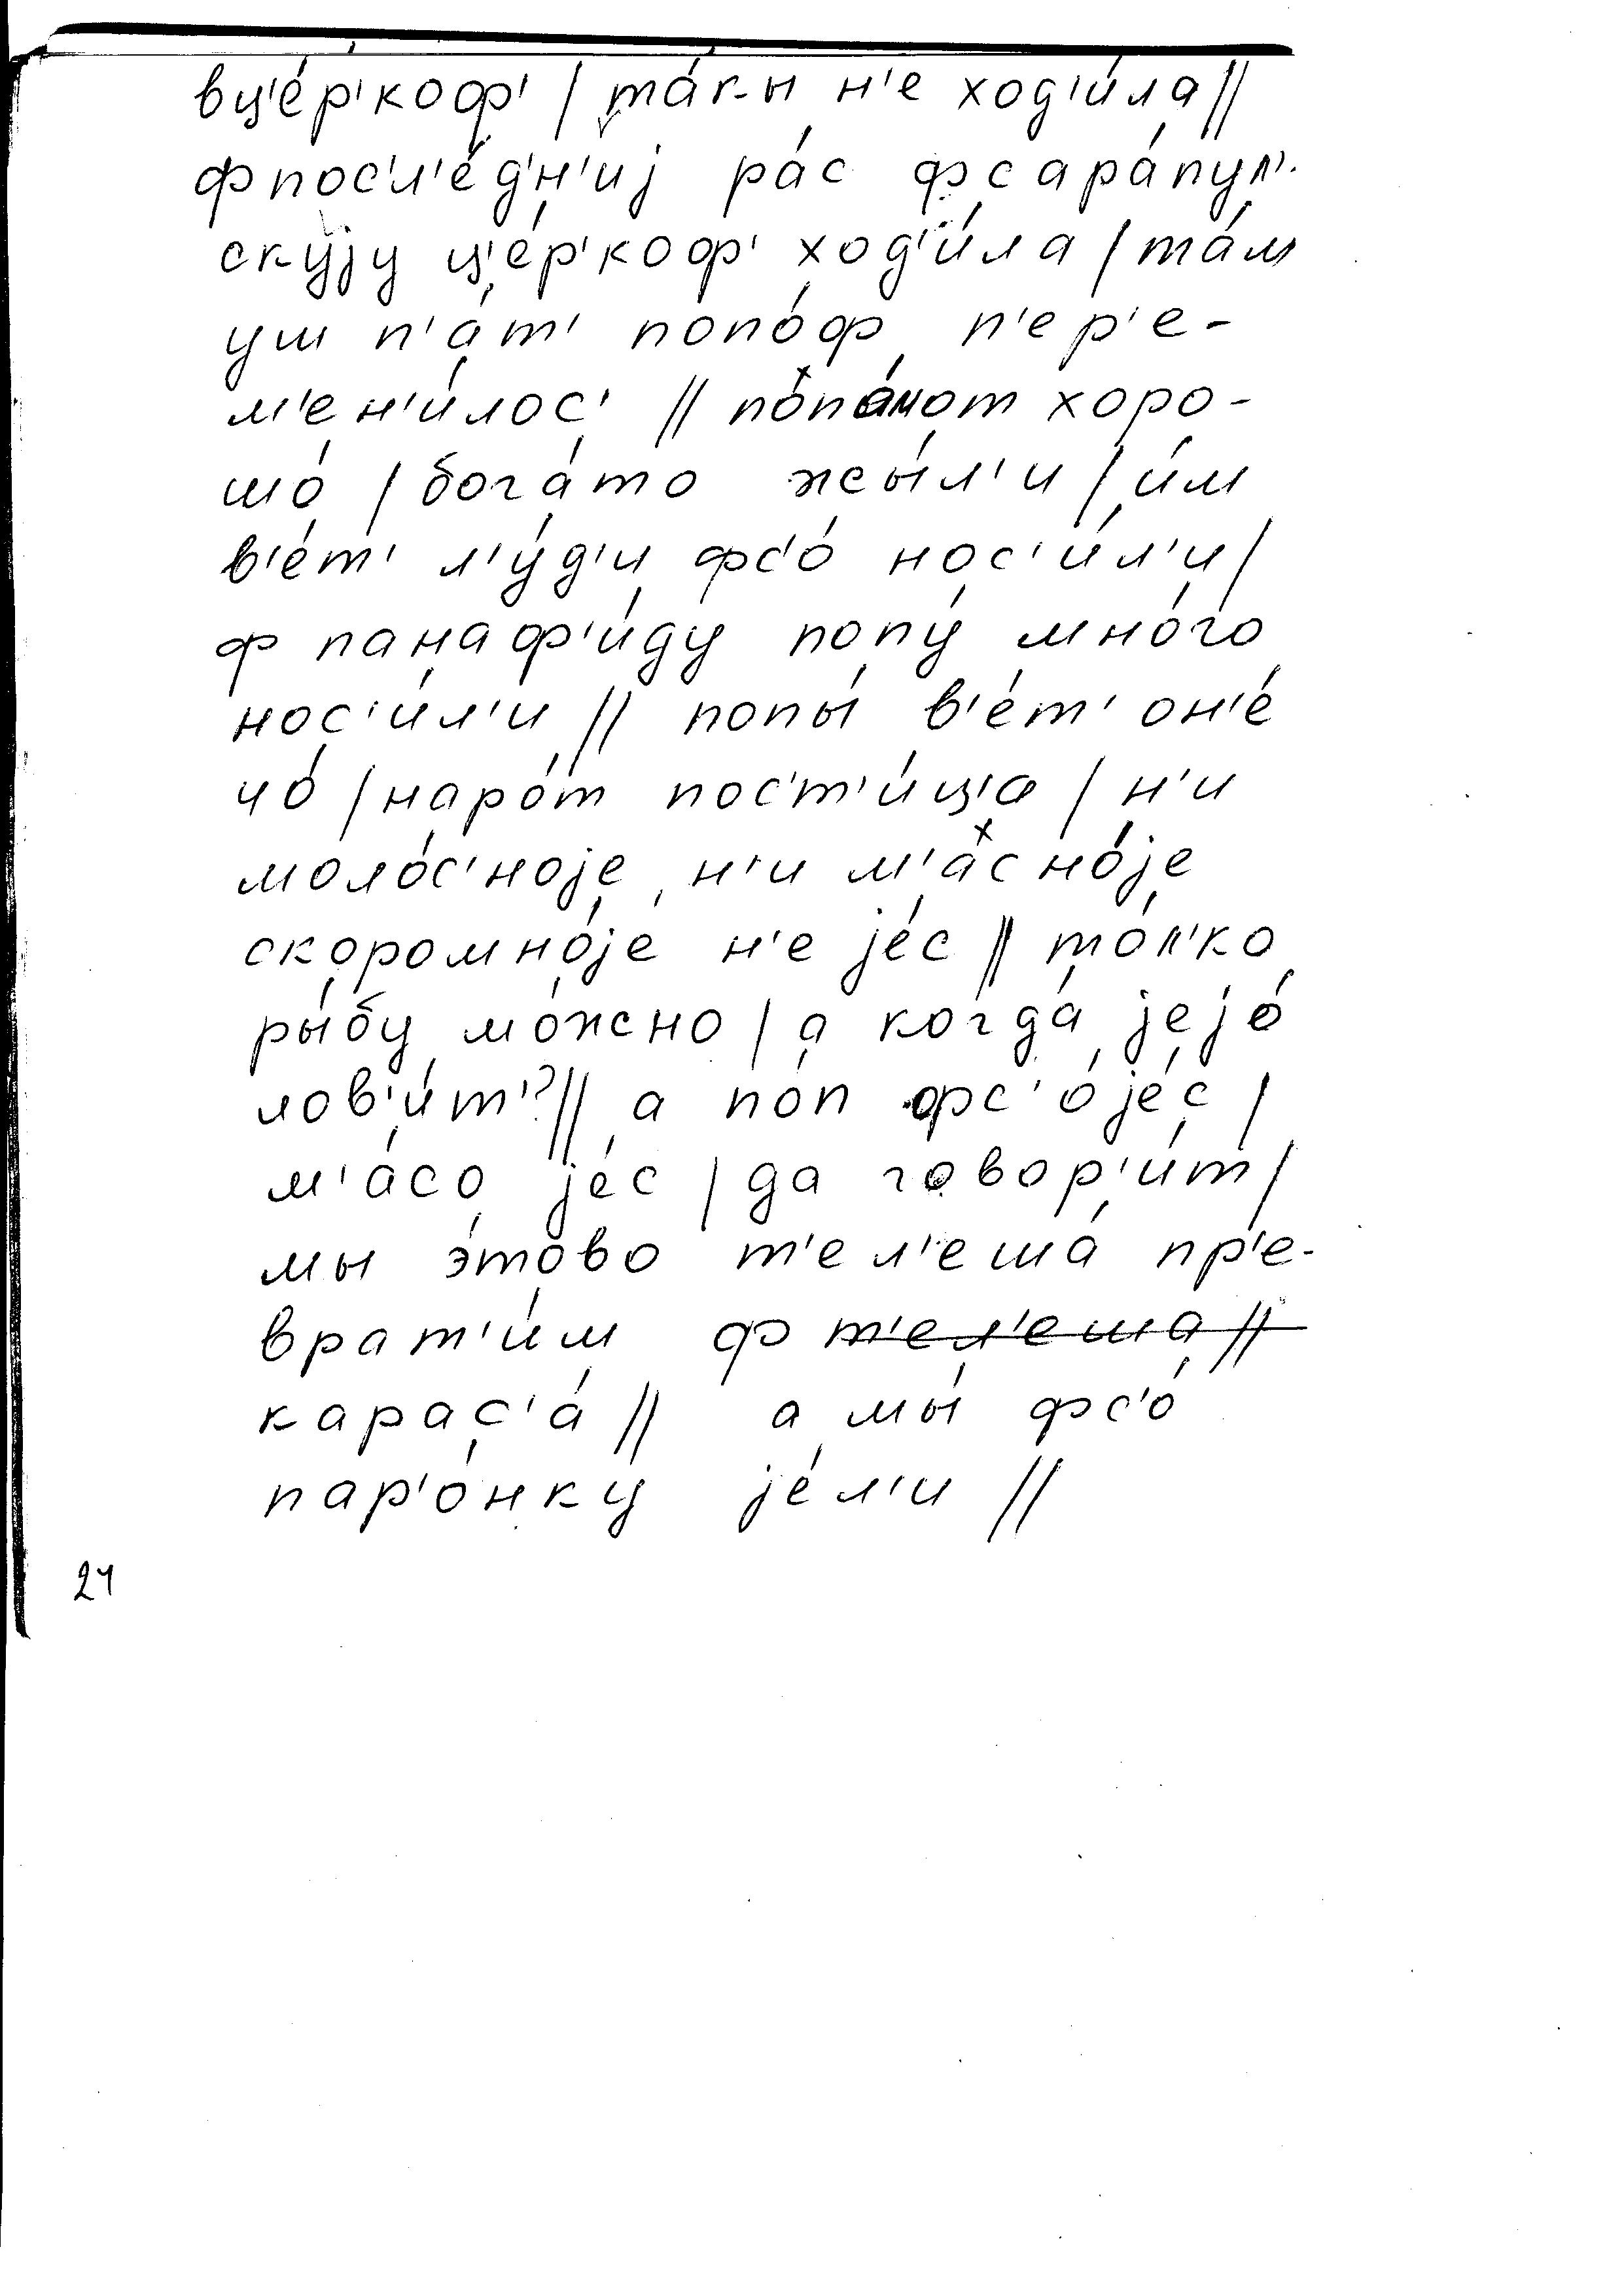 вц'е́р'коф' / та́к-ы н'е ход'и́ла //
фпос'л'е́д'н'иј ра́с фсара́пул'-
скују ц'е́р'коф' ход'и́ла / та́м
уш п'а́т' попо́ф п'ер'е-
м'ен'и́лос' // попа́м от хоро-
шо́ / бога́то жы́л'и / и́м
в'е́т' л'у́д'и фс'о́ нос'и́л'и /
ф панаф'и́ду попу́ мно́го
нос'и́л'и // попы́ в'е́т' он'е́
чо́ / наро́т пос'т'и́ц'а / н'и
моло́с'ноје н'и м'асно́је
скоромно́је н'е је́с // то́л'ко
ры́бу мо́жно / а когда́ јејо́
лов'и́т'? // а по́п фс'о́ је́с /
м'а́со је́с / да говор'и́т /
мы э́тово т'ел'еша́ пр'е-
врат'и́м ф т'ел'еша //
карас'а́ // а мы́ фс'о́
пар'о́нку је́л'и //
24